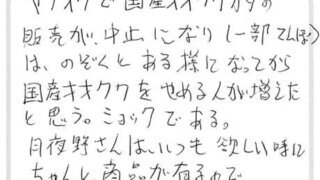 ヤフオクで国産オオクワガタの
販売が、中止になり(一部てんぽ)
は、のぞくとある様になってから
国産オオクワをやめる人が増えた
と思う。ショックである。
月夜野さんは、いつも欲しい時に
ちゃんと商品が有るので